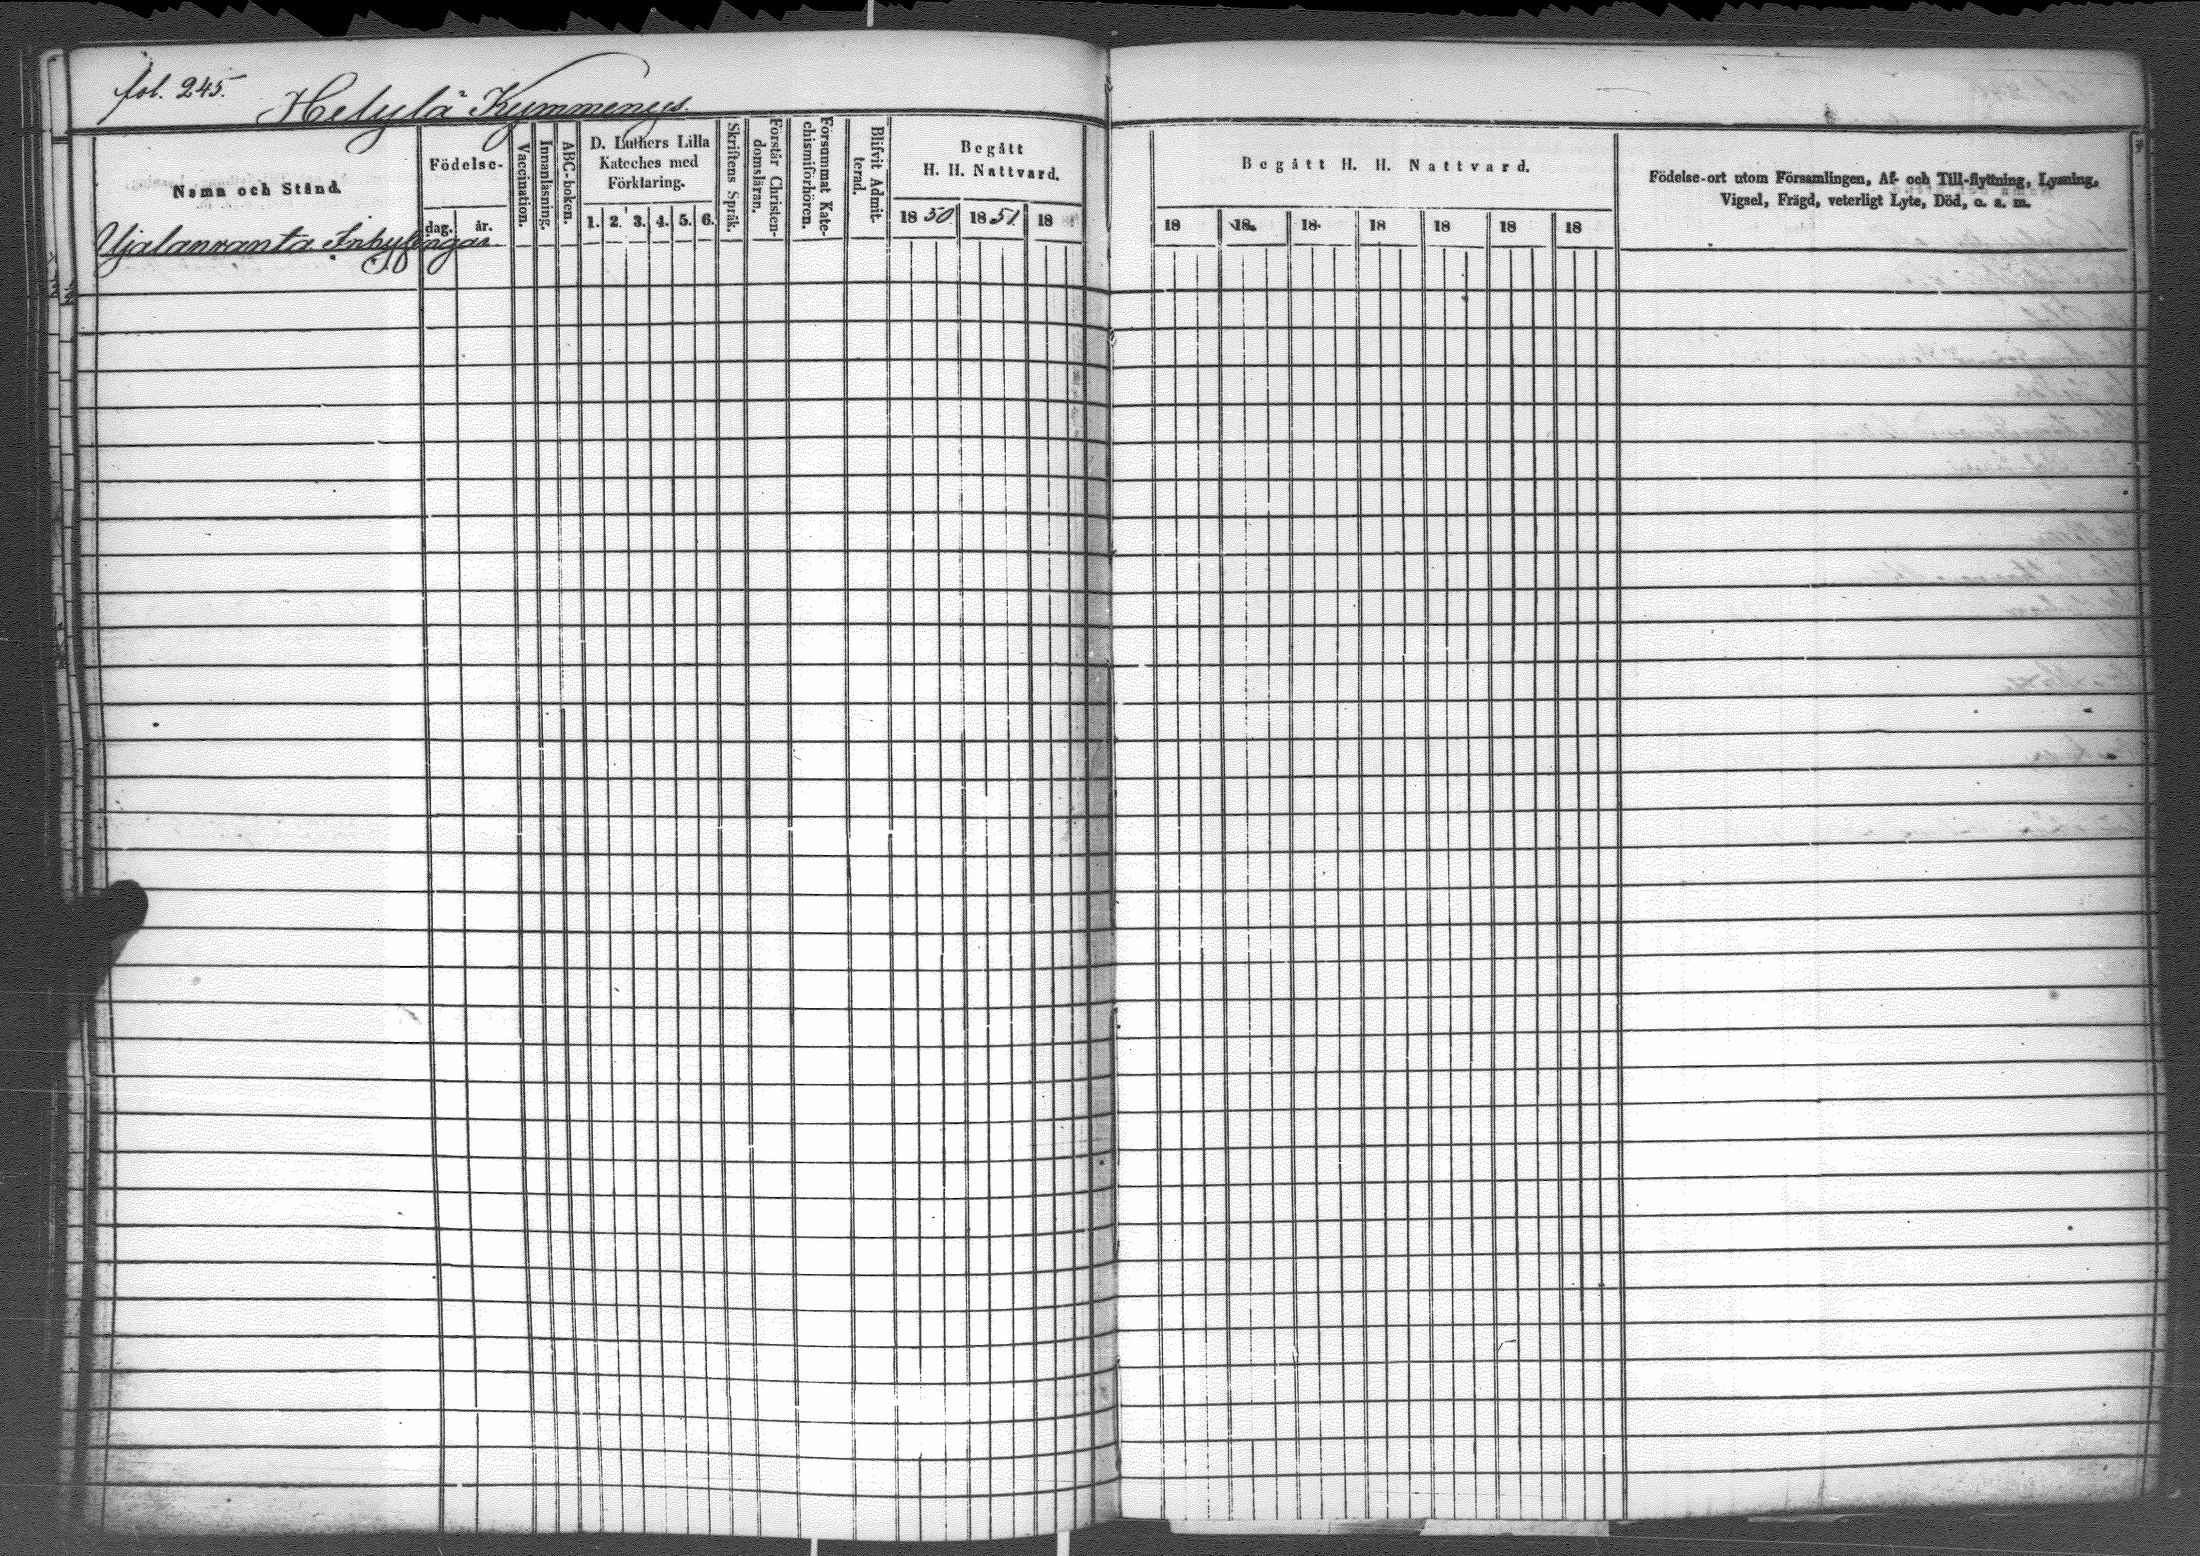 fol. 245.
Helylä Kymmenys.
Namn och Stånd.
Födelse-
dag. år.
Vaccination.
Innanläsning.
ABC-boken.
D. Luthers Lilla
Kateches med
Förklaring.
1. 2. 3. 4. 5. 6.
Skriftens Språk.
Förstår Christen-
domsläran.
Försummat Kate-
chismiförhören.
Blifvit Admit-
terad.
Begått
H. H. Nattvard.
18 50 18 51. 18
Hjalanranta Inhysingar
Begått H. H. Nattvard.
18 18. 18. 18 18 18 18
Födelse-ort utom Församlingen, Af- och Till-flyttning, Lysning,
Vigsel, Frägd, veterligt Lyte, Död, o. s. m.